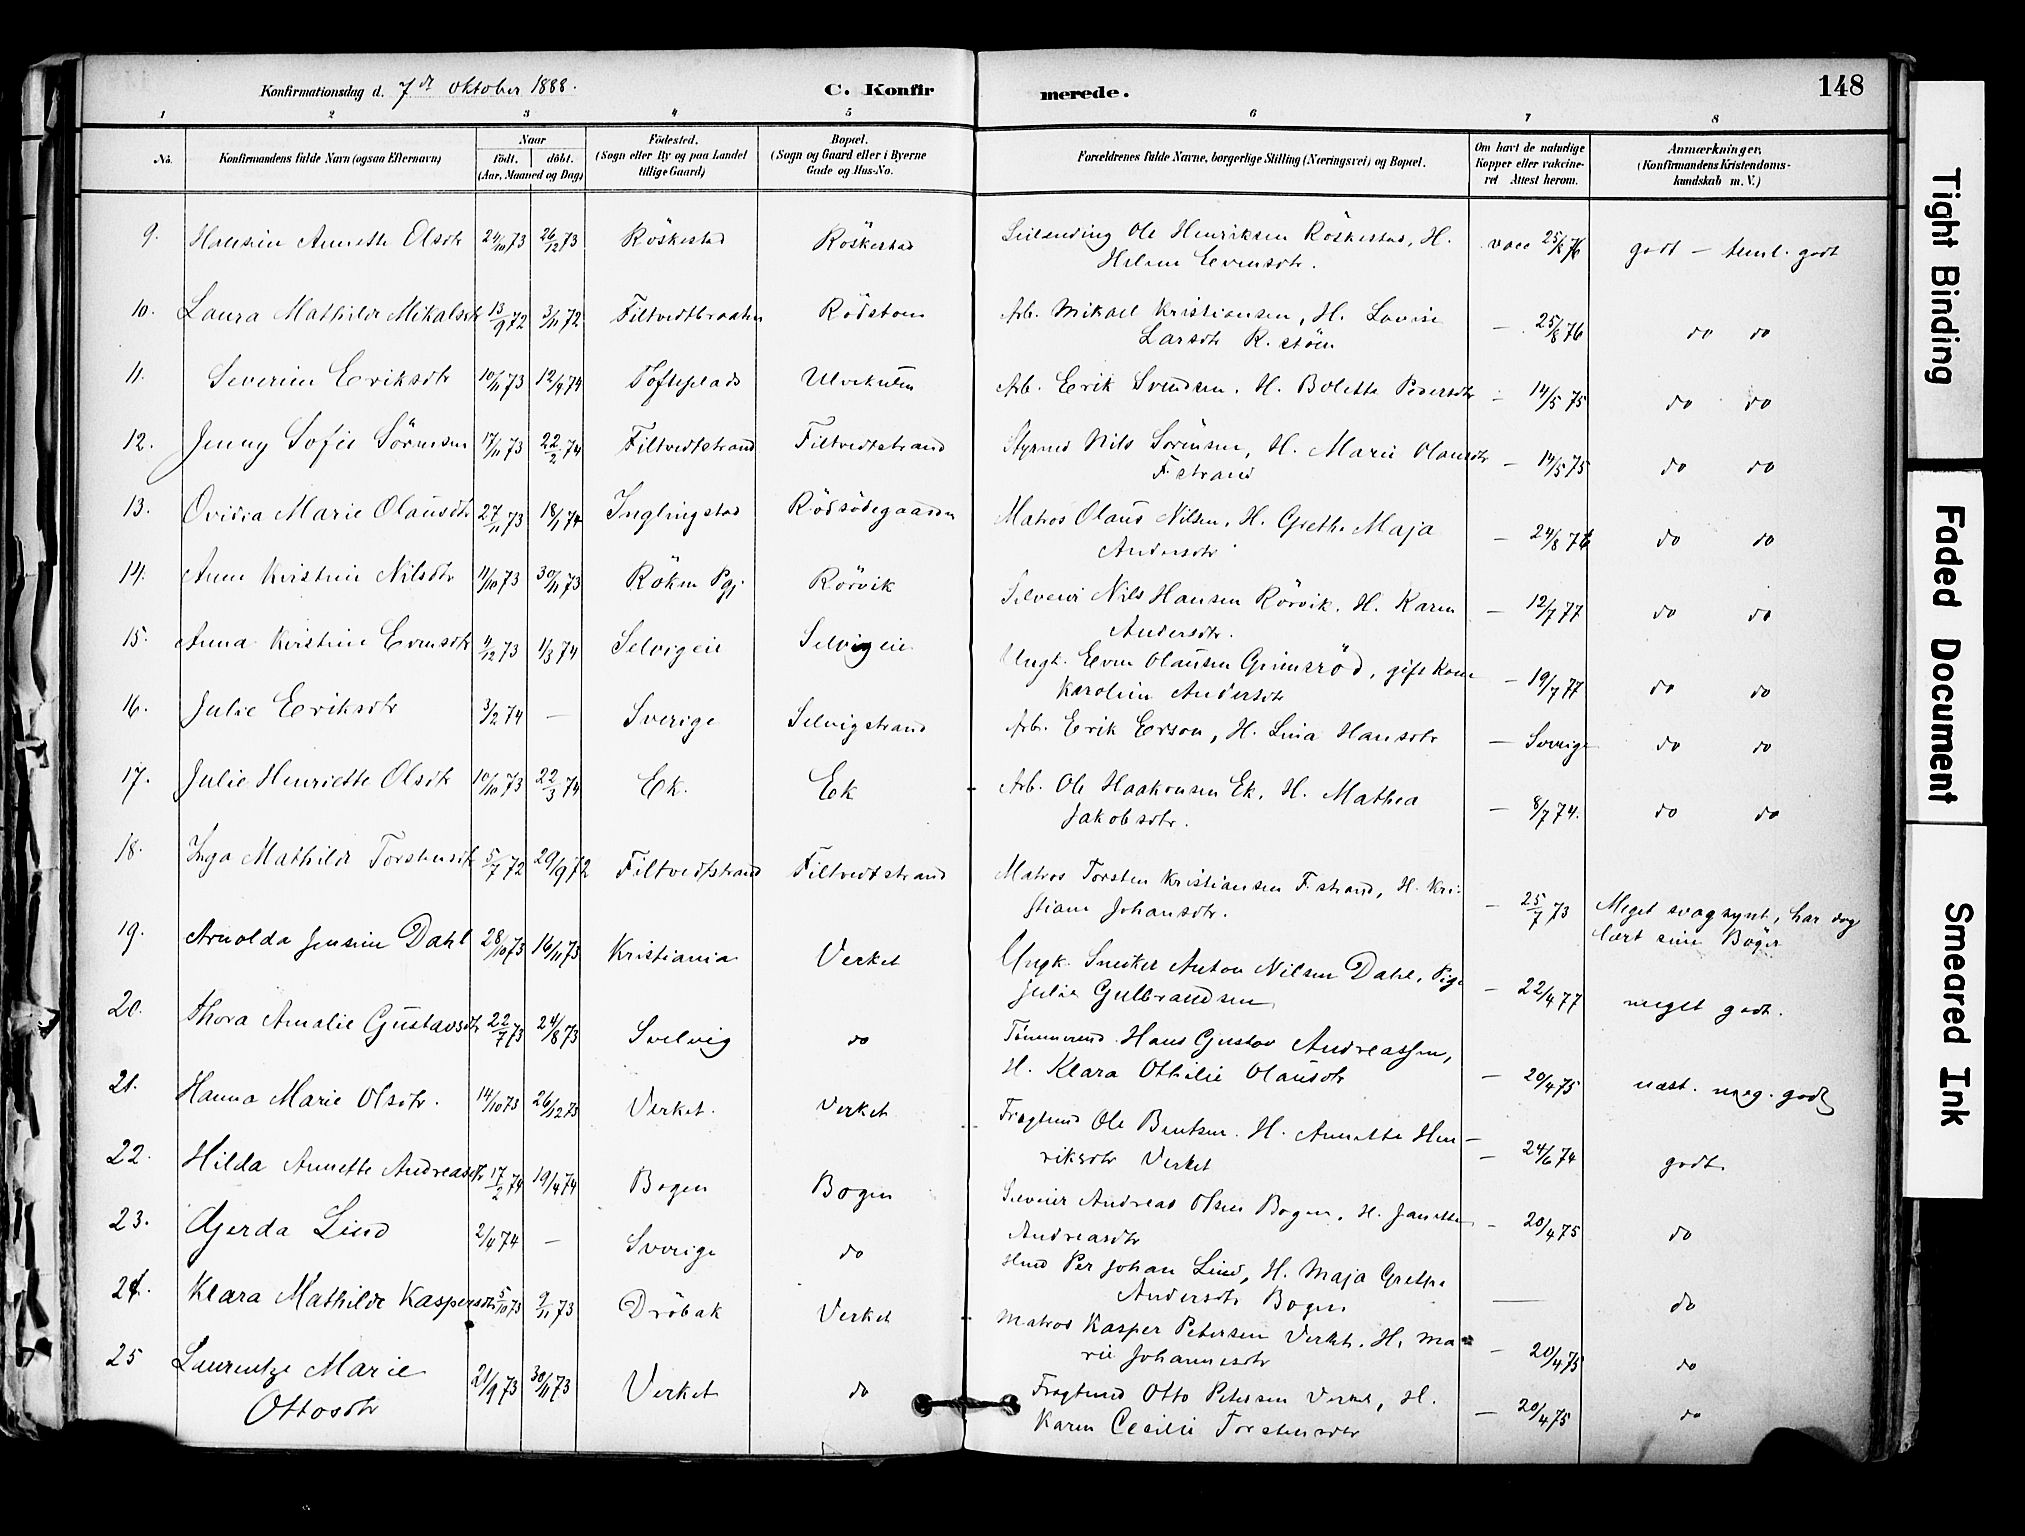 Konfirmationsdag d. 7de Oktober 1888.
C. Konfirmerede.
148
1 2 3 4 5 6 7 8
No. Konfirmandens fulde Navn (ogsaa Efternavn) Naar født. døbt. (Aar, Maaned og Dag) Fødested. (Sogn eller By og paa Landet tillige Gaard) Bopæl. (Sogn og Gaard eller i Byerne Gade og Hus-No. Forældrenes fulde Navne, borgerlige Stilling (Næringsvei) og Bopæl. Om havt de naturlige Kopper eller vakcineret Attest herom. Anmærkninger. (Konfirmandens Kristendomskundskab m. V.)
9. Annette Olsdtr 24/10 73 26/12 73 Röskestad Röskestad Ole Henriksen Röskestad, H. Helene Evensdtr. vacc 25/8 76 godt – teml. godt
10. Laura Mathilde Mikalsdtr 13/9 72 3/11 72 Filtvedtbraaten Rödstøen Arb. Mikael Kristiansen, H. Lovise Larsdtr R. støen – 25/8 76 do do
11. Severine Eriksdtr 10/11 73 12/4 74 Tofteplads Arb. Erik Svendsen, H. Bolette Pedersdtr – 14/5 75 do do
12. Jenny Sofie Sörensen 17/11 73 22/2 74 Filtvedtstrand Filtvedtstrand Styrmd Nils Sörensen, H. Marie Olausdtr F. strand – 14/5 75 do do
13. Ovidia Marie Olausdtr 27/11 73 18/1 74 Inglingstad Rödsödegaarden Matros Olaus Nilsen, H. Grethe Maja Andersdtr – 24/8 76 do do
14. Anne Kristine Nilsdtr 11/10 73 30/11 73 Röken Pgj Rörvik Selveier Nils Hansen Rörvik, H. Karen Andersdtr. – 12/7 77 do do
15. Anna Kristine Evensdtr 11/12 73 1/3 74 Selvigeie Selvigeie Ungk. Even Olausen Grimsröd, gift Kone Karoline Andersdtr – 19/7 77 do do
16. Julie Eriksdtr 3/2 74 — Sverige Selvigstrand Arb. Erik Erson, H. Lina Hansdtr – Sverige do do
17. Julie Henriette Olsdtr 10/10 73 22/3 74 Ek. Ek Arb. Ole Haakonsen Ek, H. Mathea Jakobsdtr. – 8/7 74. do do
18. Inga Mathilde Torstensdtr 5/7 72 29/9 72 Filtvedtstrand Filtvedtstrand Matros Torsten Kristiansen F. strand, H. Kristiane Johansdtr. – 25/7 73 Meget svagsynt, har dog lært sine Böger
19. Arnolda Jensine Dahl 28/10 73 16/11 73 Kristiania Verket Ungk. Snekker Anton Nilsen Dahl, Pige Julie Gulbrandsen – 22/4 77 meget godt.
20. Thora Amalie Gustavsdtr 22/7 73 24/8 73 Svelvig do Tömmermd Hans Gustav Andreassen, H. Klara Othilie Olausdtr – 20/4 75 næst. meg. godt
21. Hanna Marie Olsdtr. 14/10 73 26/12 73 Verket. Verket Fragtmd Ole Bentsen. H. Annette Henriksdtr Verket – 24/6 74 godt
22. Hilda Annette Andreasdtr 17/2 74 19/4 74 Bogen Bogen Selveier Andreas Olsen Bogen, H. Janette Andreasdtr – 20/4 75 do
23. Gjerda Lind 74 — Sverige do Hmd Per Johan Lind, H. Maja Grethe Andersdtr Bogen — do
24. Klara Mathilde Kaspersdtr 5/10 73 9/11 73 Dröbak Verket Matros Kasper Petersen Verket. H. Marie Johannesdtr – 20/4 75 do
25 Laurentze Marie Ottosdtr 21/9 73 30/11 73 Verket do Fragtmd Otto Petersen Verket, H. Karen Cecilie Torstensdtr – 20/4 75 do
Tight Binding
Faded Document
Smeared Ink